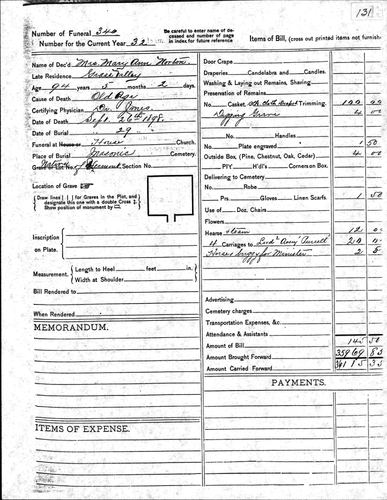 131
Number of Funeral 340
Number for the Current Year 32
Be careful to enter name of deceased and number of page in index for future reference
Items of Bill, (cross out printed items not furnish
Name of Dec'd Mrs. Mary Ann Norton
Late Residence Grass Valley
Age 94 years 5 months 2 days.
Cause of Death Old Age
Certifying Physician Dr. Jones
Date of Death Sept. 26th 1898.
Date of Burial " 29 "
Funeral at House Church.
Place of Burial Masonic Cemetery.
Section No.
Location of Grave
Draw lines [ ] for Graves in the Plot, and designate this one with a double Cross
Show position of monument by
Inscription on Plate.
Measurement. Length to Heel feet in.
Width at Shoulder
Bill Rendered to
When Rendered
MEMORANDUM.
ITEMS OF EXPENSE.
Door Crape
Draperies Candelabra and Candles.
Washing & Laying out Remains, Shaving
Preservation of Remains
No. Casket, Trimming. 100 00
Digging Grave 4 00
No. Handles
Plate engraved 1 50
Outside Box (Pine, Chestnut, Oak, Cedar) 4 00
Delivering to Cemetery
No. P'l'y H'dl's Corners on Box.
Prs. Gloves Linen Scarfs. 1 50
Use of Doz. Chairs
Flowers
Hearse & team 12 0
4 Carriages to 20 0
Horse & buggy for Minister 2 5
Advertising
Cemetery charges
Transportation Expenses, &c.
Attendance & Assistants
Amount of Bill 145 50
Amount Brought Forward 35969 85
Amount Carried Forward 36115 35
PAYMENTS.